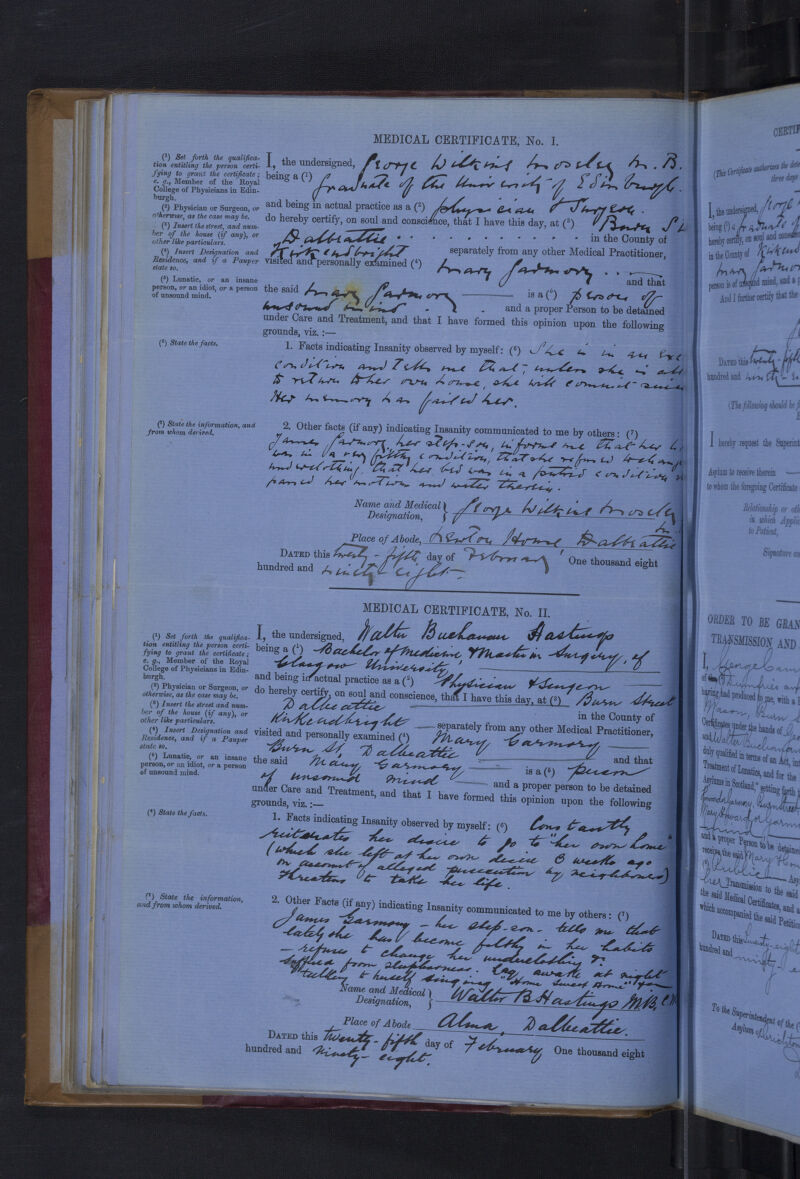 MEDICAL CERTIFICATE, No. I.
(¹) Set forth the qualifica-
tion entitling the person certi-
fying to grant the certificate;
e. g., Member of the Royal
College of Physicians in Edin-
burgh.
(²) Physician or Surgeon, or
otherwise, as the case may be.
(³) Insert the street, and num-
ber of the house (if any), or
other like particulars.
(⁴) Insert Designation and
Residence, and if a Pauper
state so.
(⁵) Lunatic, or an insane
person, or an idiot, or a person
of unsound mind.
(⁶) State the facts.
(⁷) State the information, and
from whom derived.
I, the undersigned, George Wilkins Moseley M. B.
being a (¹) graduate of the University of Edinburgh.
and being in actual practice as a (²) physician & Surgeon.
do hereby certify, on soul and conscience, that I have this day, at (³) Burn St
Dalbeattie in the County of
Kirkcudbright separately from any other Medical Practitioner,
visited and personally examined (⁴) Mary Garmory and that
the said Mary Garmory is a (⁵) person of
unsound mind and a proper Person to be detained
under Care and Treatment, and that I have formed this opinion upon the following
grounds, viz. :—
1. Facts indicating Insanity observed by myself: (⁶) She is in an
condition and tells me that, unless she is
to return to her own house, she will commit
Her memory has failed her.
2. Other facts (if any) indicating Insanity communicated to me by others: (⁷)
James Garmory her step-son, informs me that her
was in a very filthy condition, that she refused to change
underclothing, that her bed was in a putrid condition
passed her motions and water therein.
Name and Medical Designation, George Wilkins Moseley
Place of Abode, Newton House Dalbeattie
DATED this twenty-fifth day of February One thousand eight
hundred and ninety-eight.
MEDICAL CERTIFICATE, No. II.
(¹) Set forth the qualifica-
tion entitling the person certi-
fying to grant the certificate;
e. g., Member of the Royal
College of Physicians in Edin-
burgh.
(²) Physician or Surgeon, or
otherwise, as the case may be.
(³) Insert the street and num-
ber of the house (if any), or
other like particulars.
(⁴) Insert Designation and
Residence, and if a Pauper
state so.
(⁵) Lunatic, or an insane
person, or an idiot, or a person
of unsound mind.
(⁶) State the facts.
(⁷) State the information,
and from whom derived.
I, the undersigned, Walter Buchanan Hastings
being a (¹) Bachelor of Medicine & Master in Surgery, of
Glasgow University,
and being in actual practice as a (²) Physician & Surgeon
do hereby certify, on soul and conscience, that I have this day, at (³) Burn Street
Dalbeattie in the County of
Kirkcudbright separately from any other Medical Practitioner,
visited and personally examined (⁴) Mary Garmory
Burn St, Dalbeattie and that
the said Mary Garmory is a (⁵) person
of unsound mind and a proper person to be detained
under Care and Treatment, and that I have formed this opinion upon the following
grounds, viz. :—
1. Facts indicating Insanity observed by myself: (⁶) Constantly
reiterates her desire to go to "her own home"
(which she left at her own desire 3 weeks ago
on account of alleged persecution by neighbours)
Threatens to take her life.
2. Other Facts (if any) indicating Insanity communicated to me by others: (⁷)
James Garmory - her step-son - tells me that
lately she has become filthy in her habits
- refuses to change her underclothing &
suffered from sleeplessness. Lay awake at night
talking to herself singing "Home Sweet Home"
Name and Medical Designation, Walter B Hastings M.B., C.M
Place of Abode Alma, Dalbeattie.
DATED this twenty-fifth day of February One thousand eight
hundred and ninety-eight.
(This Certificate authorises the
three days
I, the undersigned,
being (¹) a graduate of
hereby certify, on soul and
in the County of
person is of unsound mind, and a
And I further certify that the
DATED this twenty-
hundred and
(The following should be
I hereby request the Superint
Asylum to receive therein
to whom the foregoing Certificate
Relationship or
in which
to Patient,
Signature
ORDER TO BE GRAN
TRANSMISSION AND
having had produced to me, with a
Certificates under the hands of
and Walter Buchanan
duly qualified in terms of an Act,
Treatment of Lunatics, and for the
Asylums in Scotland," setting forth
and a proper Person to be detained
receive, the said Mary
Transmission to the said
the said Medical Certificates, and
which accompanied the said Petition
DATED this twenty-eight
hundred and
To the Superintendent of the
Asylum